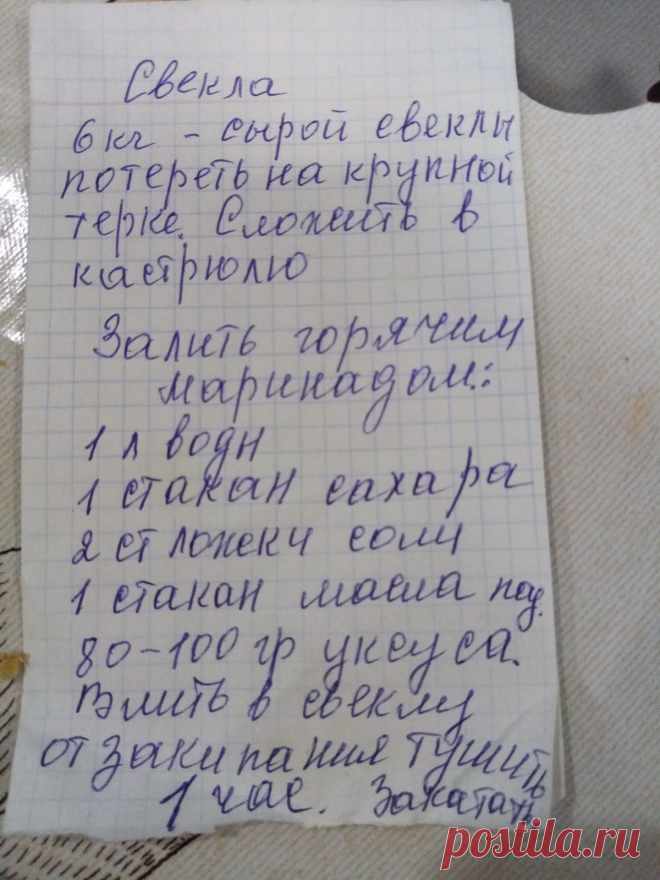 Свекла
6 кг - сырой свеклы
потереть на крупной
терке. Сложить в
кастрюлю
Залить горячим
маринадом:
1 л воды
1 стакан сахара
2 ст ложки соли
1 стакан масла
80-100 гр уксуса.
Влить в свеклу
от закипания тушить
1 час. Закатать
postila.ru